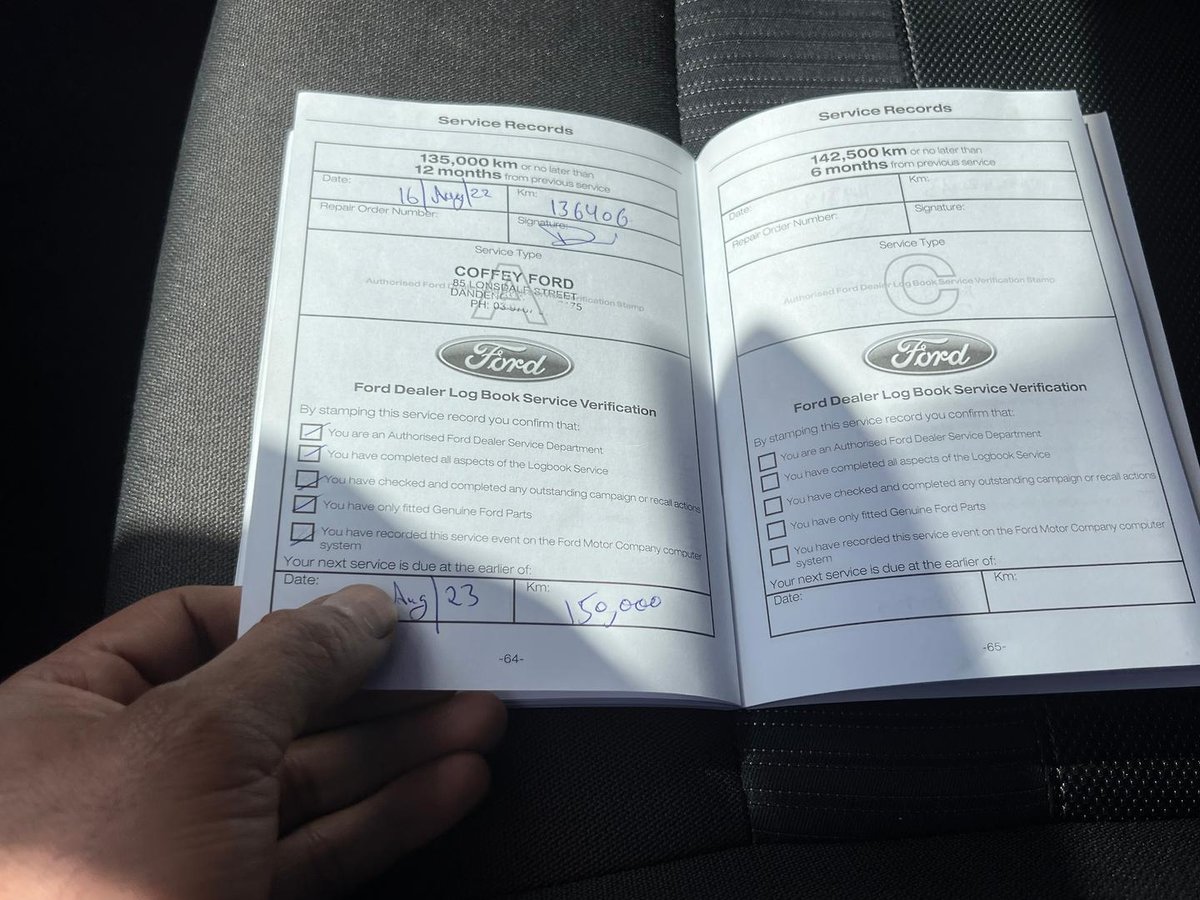 Service Records
135,000 km or no later than
12 months from previous service
Date: 16/Aug/22
Km: 136406
Repair Order Number:
Signature:
Service Type
A
Authorised Ford Verification Stamp
COFFEY FORD
85 LONSDALE STREET
DANDENONG 3175
PH: 03
Ford
Ford Dealer Log Book Service Verification
By stamping this service record you confirm that:
You are an Authorised Ford Dealer Service Department
You have completed all aspects of the Logbook Service
You have checked and completed any outstanding campaign or recall actions
You have only fitted Genuine Ford Parts
You have recorded this service event on the Ford Motor Company computer
system
Your next service is due at the earlier of:
Date: Aug/23
Km: 150,000
-64-
Service Records
142,500 km or no later than
6 months from previous service
Date:
Km:
Repair Order Number:
Signature:
Service Type
C
Authorised Ford Dealer Log Book Service Verification Stamp
Ford
Ford Dealer Log Book Service Verification
By stamping this service record you confirm that:
You are an Authorised Ford Dealer Service Department
You have completed all aspects of the Logbook Service
You have checked and completed any outstanding campaign or recall actions
You have only fitted Genuine Ford Parts
You have recorded this service event on the Ford Motor Company computer
system
Your next service is due at the earlier of:
Date:
Km:
-65-